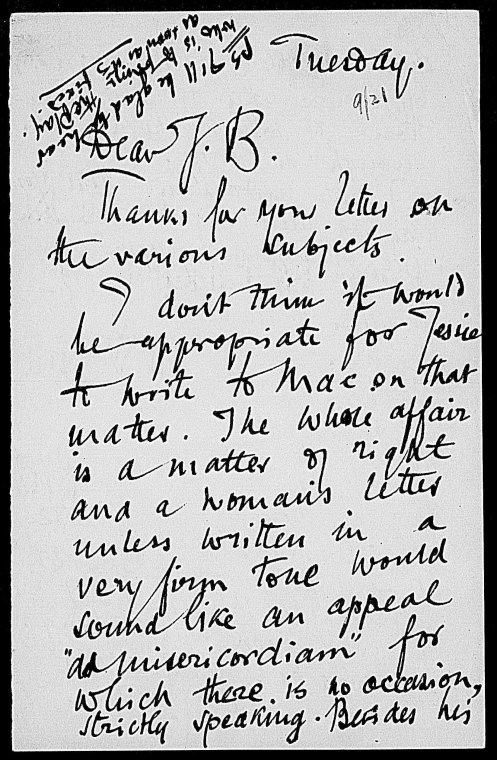 PS I'll be glad to hear
who is to play
as soon as it's
fixed.
the play.
Tuesday.
9/21
Dear J. B.
Thanks for your letter on
the various subjects.
I don't think it would
be appropriate for Jessie
to write to Mac on that
matter. The whole affair
is a matter of right
and a woman's letter
unless written in a
very firm tone would
sound like an appeal
"ad misericordiam" for
which there is no occasion,
strictly speaking. Besides his